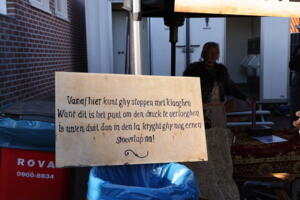 Vanaf hier kunt ghy stoppen met klaeghen
Want dit is het punt om den druck te verlaeghen
In uwen duit dan in den la kryght ghy nog eenen
stoverlap na!
ROVA
0900-8834